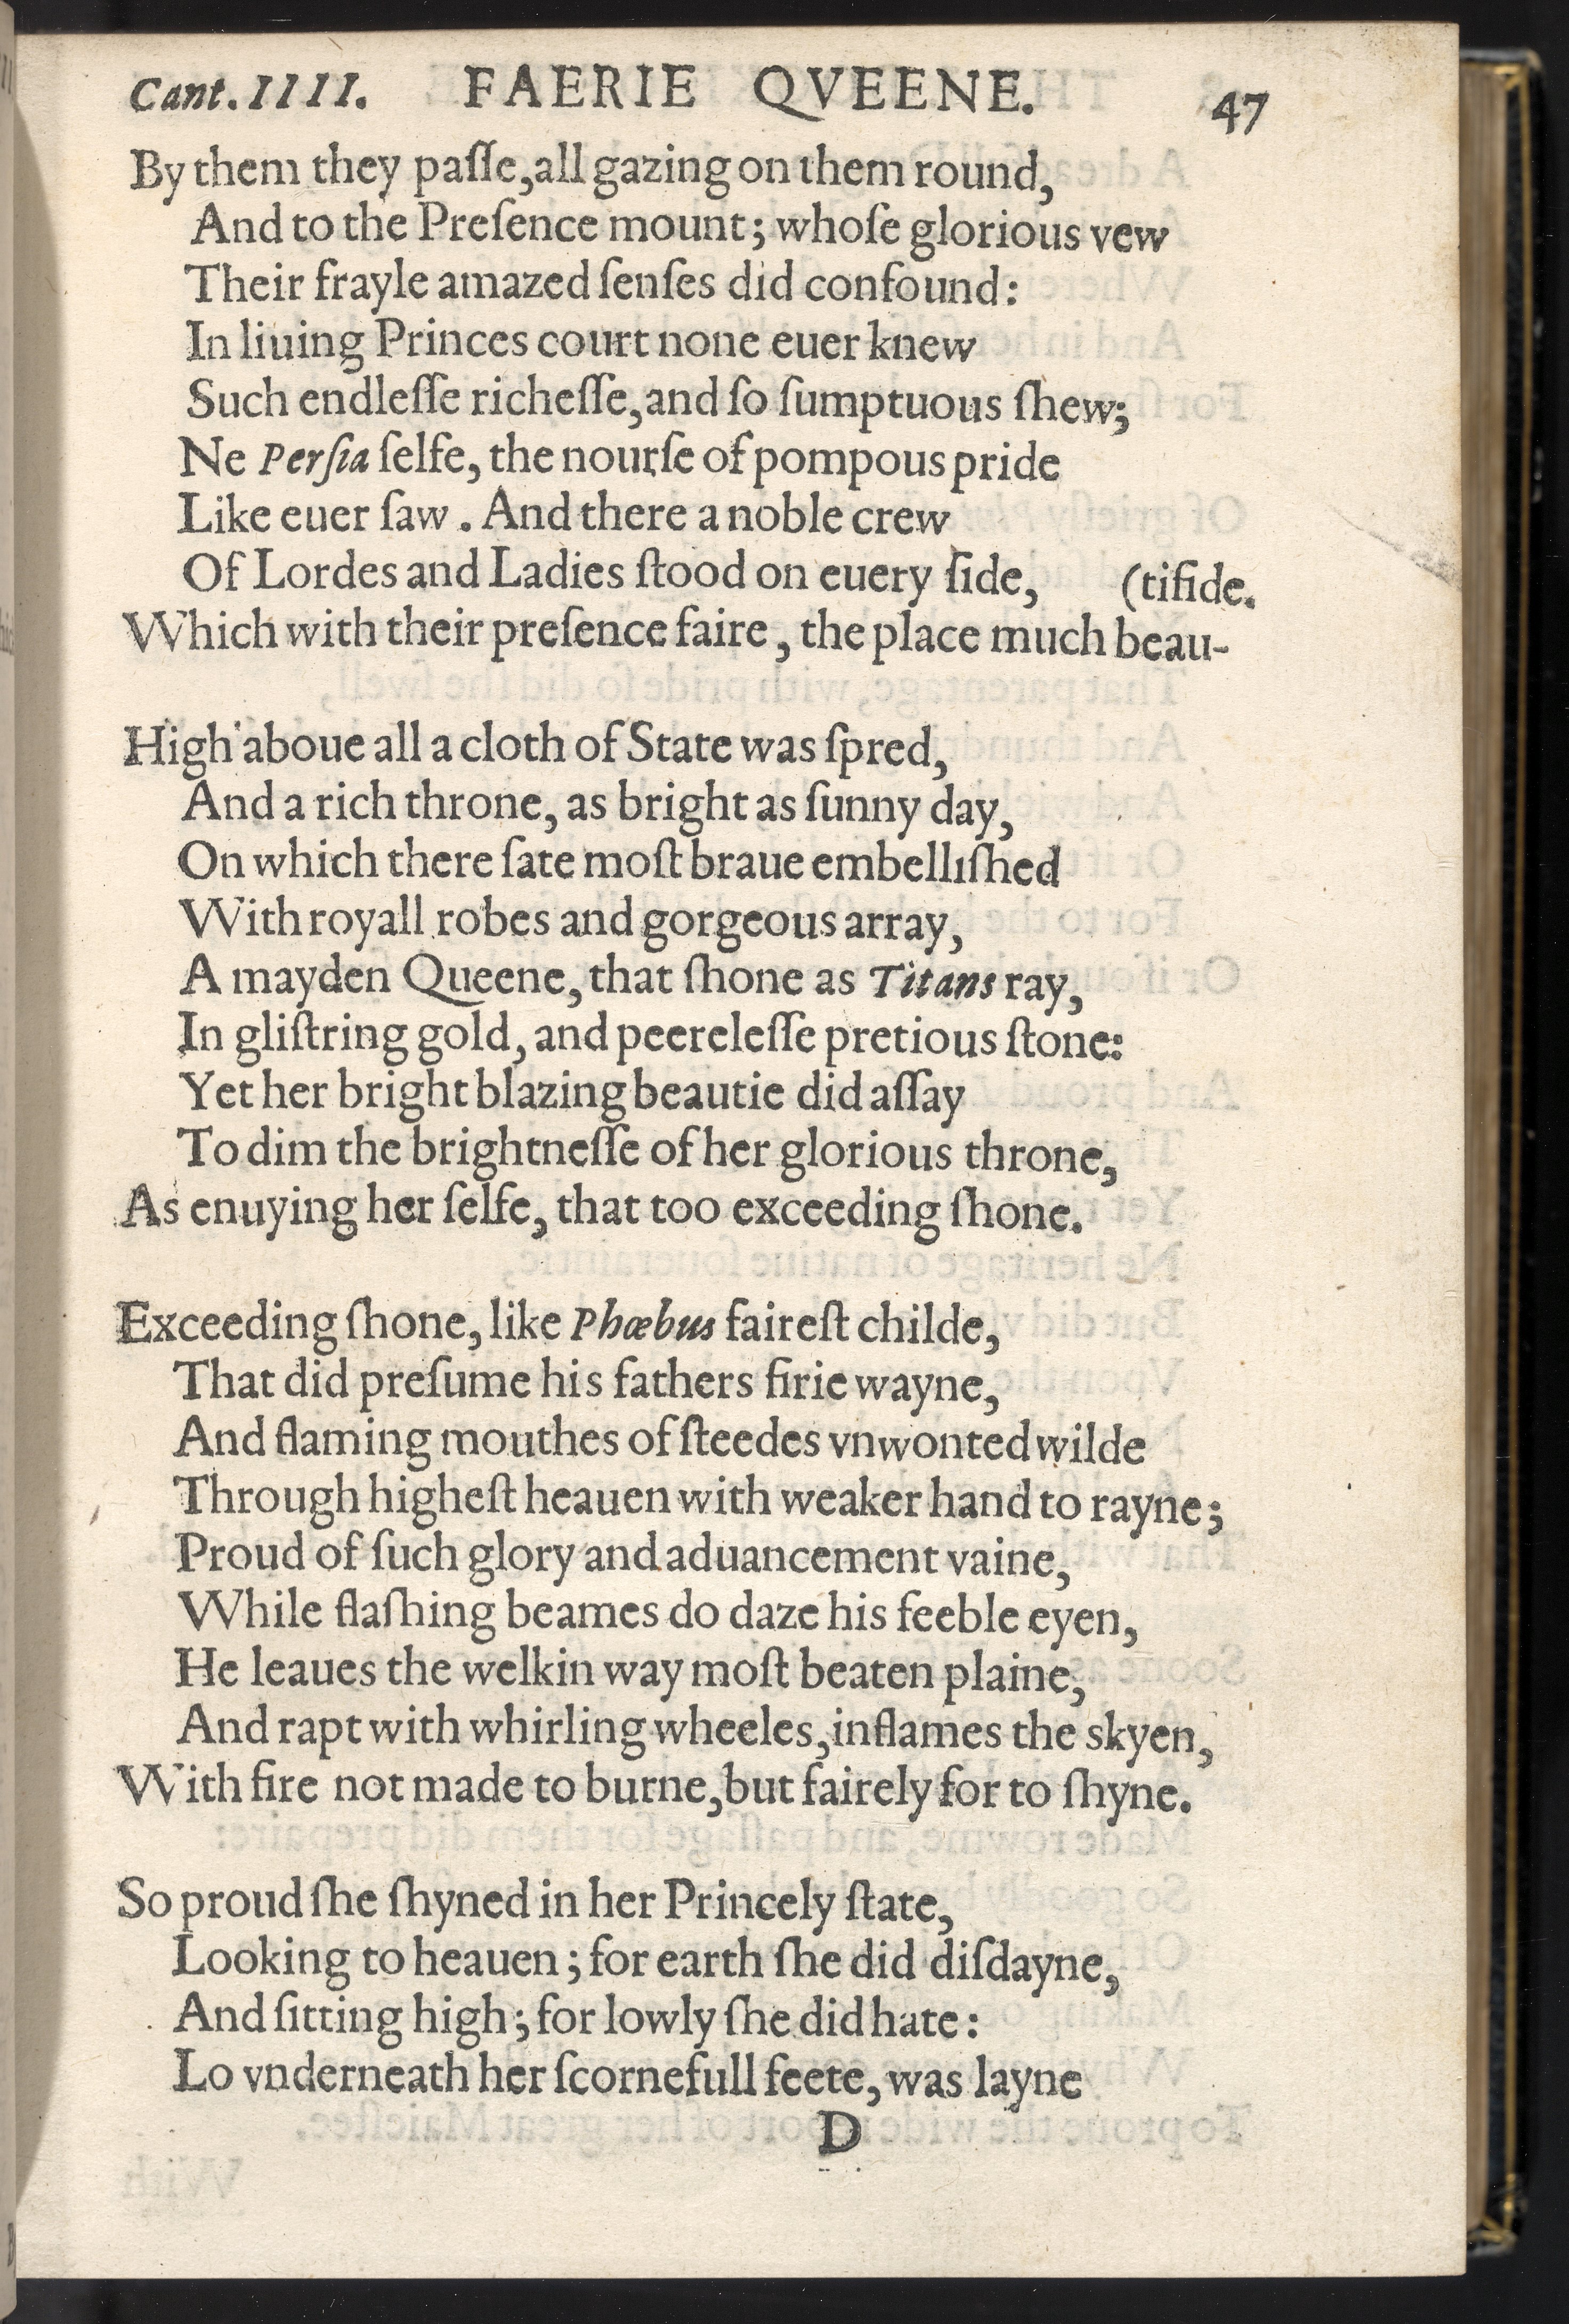 Cant. IIII. FAERIE QVEENE. 47
By them they paſſe, all gazing on them round,
And to the Preſence mount; whoſe glorious vew
Their frayle amazed ſenſes did confound:
In liuing Princes court none euer knew
Such endleſſe richeſſe, and ſo ſumptuous ſhew;
Ne Perſia ſelfe, the nourſe of pompous pride
Like euer ſaw. And there a noble crew
Of Lordes and Ladies ſtood on euery ſide, (tifide.
Which with their preſence faire, the place much beau-
High aboue all a cloth of State was ſpred,
And a rich throne, as bright as ſunny day,
On which there ſate moſt braue embelliſhed
With royall robes and gorgeous array,
A mayden Queene, that ſhone as Titans ray,
In gliſtring gold, and peereleſſe pretious ſtone:
Yet her bright blazing beautie did aſſay
To dim the brightneſſe of her glorious throne,
As enuying her ſelfe, that too exceeding ſhone.
Exceeding ſhone, like Phœbus faireſt childe,
That did preſume his fathers firie wayne,
And flaming mouthes of ſteedes vnwonted wilde
Through higheſt heauen with weaker hand to rayne;
Proud of ſuch glory and aduancement vaine,
While flaſhing beames do daze his feeble eyen,
He leaues the welkin way moſt beaten plaine,
And rapt with whirling wheeles, inflames the skyen,
With fire not made to burne, but fairely for to ſhyne.
So proud ſhe ſhyned in her Princely ſtate,
Looking to heauen; for earth ſhe did diſdayne,
And ſitting high; for lowly ſhe did hate:
Lo vnderneath her ſcornefull feete, was layne
D